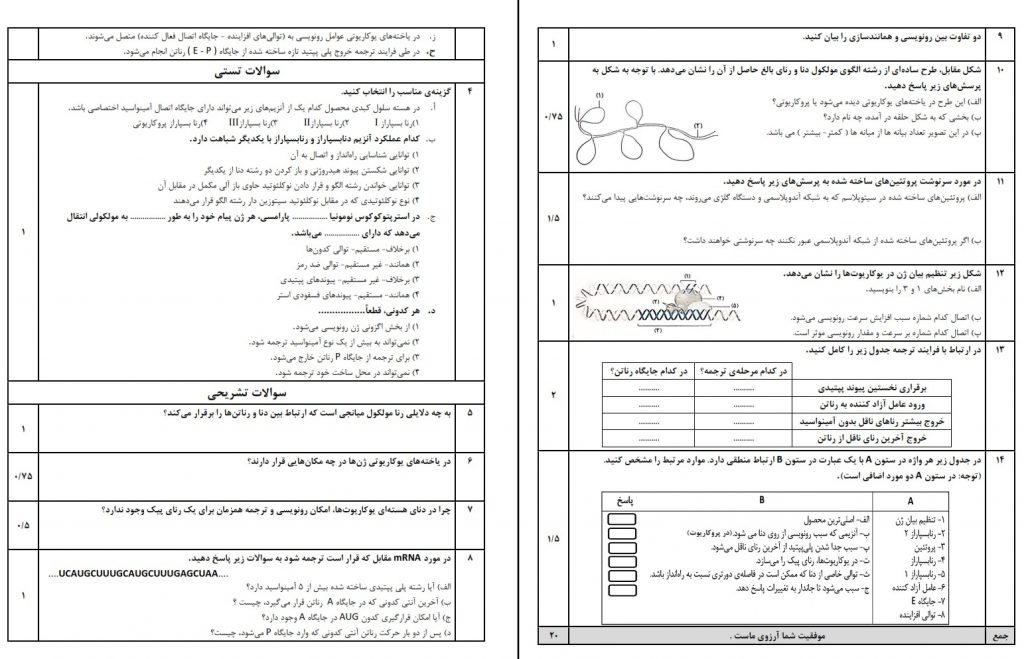 ز. در یاخته‌های یوکاریوتی عوامل رونویسی به (توالی‌های افزاینده - جایگاه اتصال فعال کننده) متصل می‌شوند.
ح. در طی فرایند ترجمه خروج پلی پپتید تازه ساخته شده از جایگاه ( E - P ) رناتن انجام می‌شود.
سوالات تستی
۴
گزینه‌ی مناسب را انتخاب کنید.
أ. در هسته سلول کبدی محصول کدام یک از آنزیم‌های زیر می‌تواند دارای جایگاه اتصال آمینواسید اختصاصی باشد.
۱)رنا بسپاراز I ۲)رنا بسپارازII ۳)رنا بسپارازIII ۴)رنا بسپاراز پروکاریوتی
ب. کدام عملکرد آنزیم دنابسپاراز و رنابسپاراز با یکدیگر شباهت دارد.
۱) توانایی شناسایی راه‌انداز و اتصال به آن
۲) توانایی شکستن پیوند هیدروژنی و باز کردن دو رشته دنا از یکدیگر
۳) توانایی خواندن رشته الگو و قرار دادن نوکلئوتید حاوی باز آلی مکمل در مقابل آن
۴) نوع نوکلئوتیدی که در مقابل نوکلئوتید سیتوزین دار رشته الگو قرار می‌دهند
ج. در استرپتوکوکوس نومونیا ................ پارامسی، هر ژن پیام خود را به طور ................ به مولکولی انتقال
می‌دهد که دارای ................ می‌باشد.
۱) برخلاف- مستقیم- توالی کدون‌ها
۲) همانند- غیر مستقیم- توالی ضد رمز
۳) برخلاف- غیر مستقیم- پیوندهای پپتیدی
۴) همانند- مستقیم- پیوندهای فسفودی استر
د. هر کدونی، قطعاً.................
۱) از بخش اگزونی ژن رونویسی می‌شود.
۲) نمی‌تواند به بیش از یک نوع آمینواسید ترجمه شود.
۳) برای ترجمه از جایگاه P رناتن خارج می‌شود.
۴) نمی‌تواند در محل ساخت خود ترجمه شود.
۱
سوالات تشریحی
۵
به چه دلایلی رنا مولکول میانجی است که ارتباط بین دنا و رناتن‌ها را برقرار می‌کند؟
۱
۶
در یاخته‌های یوکاریوتی ژن‌ها در چه مکان‌هایی قرار دارند؟
۰/۷۵
۷
چرا در دنای هسته‌ای یوکاریوت‌ها، امکان رونویسی و ترجمه همزمان برای یک رنای پیک وجود ندارد؟
۰/۵
۸
در مورد mRNA مقابل که قرار است ترجمه شود به سوالات زیر پاسخ دهید.
....UCAUGCUUUGCAUGCUUUGAGCUAA....
الف) آیا رشته پلی پپتیدی ساخته شده بیش از ۵ آمینواسید دارد؟
ب) آخرین آنتی کدونی که در جایگاه A رناتن قرار می‌گیرد، چیست ؟
ج) آیا امکان قرارگیری کدون AUG در جایگاه A وجود دارد؟
د) پس از دو بار حرکت رناتن آنتی کدونی که وارد جایگاه P می‌شود، چیست؟
۱
۹
دو تفاوت بین رونویسی و همانندسازی را بیان کنید.
۱
۱۰
شکل مقابل، طرح ساده‌ای از رشته الگوی مولکول دنا و رنای بالغ حاصل از آن را نشان می‌دهد. با توجه به شکل به
پرسش‌های زیر پاسخ دهید.
الف) این طرح در یاخته‌های یوکاریوتی دیده می‌شود یا پروکاریوتی؟
ب) بخشی که به شکل حلقه در آمده، چه نام دارد؟
پ) در این تصویر تعداد بیانه ها از میانه ها ( کمتر- بیشتر ) می باشد.
(۱)
(۲)
۰/۷۵
۱۱
در مورد سرنوشت پروتئین‌های ساخته شده به پرسش‌های زیر پاسخ دهید.
الف) پروتئین‌های ساخته شده در سیتوپلاسم که به شبکه آندوپلاسمی و دستگاه گلژی می‌روند، چه سرنوشت‌هایی پیدا می‌کنند؟
ب) اگر پروتئین‌های ساخته شده از شبکه آندوپلاسمی عبور نکنند چه سرنوشتی خواهند داشت؟
۱/۵
۱۲
شکل زیر تنظیم بیان ژن در یوکاریوت‌ها را نشان می‌دهد.
الف) نام بخش‌های ۱ و ۳ را بنویسید.
ب) اتصال کدام شماره سبب افزایش سرعت رونویسی می‌شود.
پ) اتصال کدام شماره بر سرعت و مقدار رونویسی موثر است.
(۱)
(۲)
(۳)
(۴)
(۵)
۱
۱۳
در ارتباط با فرایند ترجمه جدول زیر را کامل کنید.
در کدام مرحله‌ی ترجمه؟ در کدام جایگاه رناتن؟
برقراری نخستین پیوند پپتیدی .......... ..........
ورود عامل آزاد کننده به رناتن .......... ..........
خروج بیشتر رناهای ناقل بدون آمینواسید .......... ..........
خروج آخرین رنای ناقل از رناتن .......... ..........
۲
۱۴
در جدول زیر هر واژه در ستون A با یک عبارت در ستون B ارتباط منطقی دارد. موارد مرتبط را مشخص کنید.
(توجه: در ستون A دو مورد اضافی است).
A B پاسخ
۱- تنظیم بیان ژن الف- اصلی‌ترین محصول
۲- رنابسپاراز ۲ ب- آنزیمی که سبب رونویسی از روی دنا می شود.(در پروکاریوت)
۳- پروتئین پ- سبب جدا شدن پلی‌پپتید از آخرین رنای ناقل می‌شود.
۴- رنابسپاراز ت- در یوکاریوت‌ها، رنای پیک را می‌سازد.
۵- رنابسپاراز ۱ ث- توالی خاصی از دنا که ممکن است در فاصله‌ی دورتری نسبت به راه‌انداز باشد.
۶- عامل آزاد کننده ج- سبب می‌شود تا جاندار به تغییرات پاسخ دهد.
۷- جایگاه E
۸- توالی افزاینده
۱/۵
جمع موفقیت شما آرزوی ماست . ۲۰